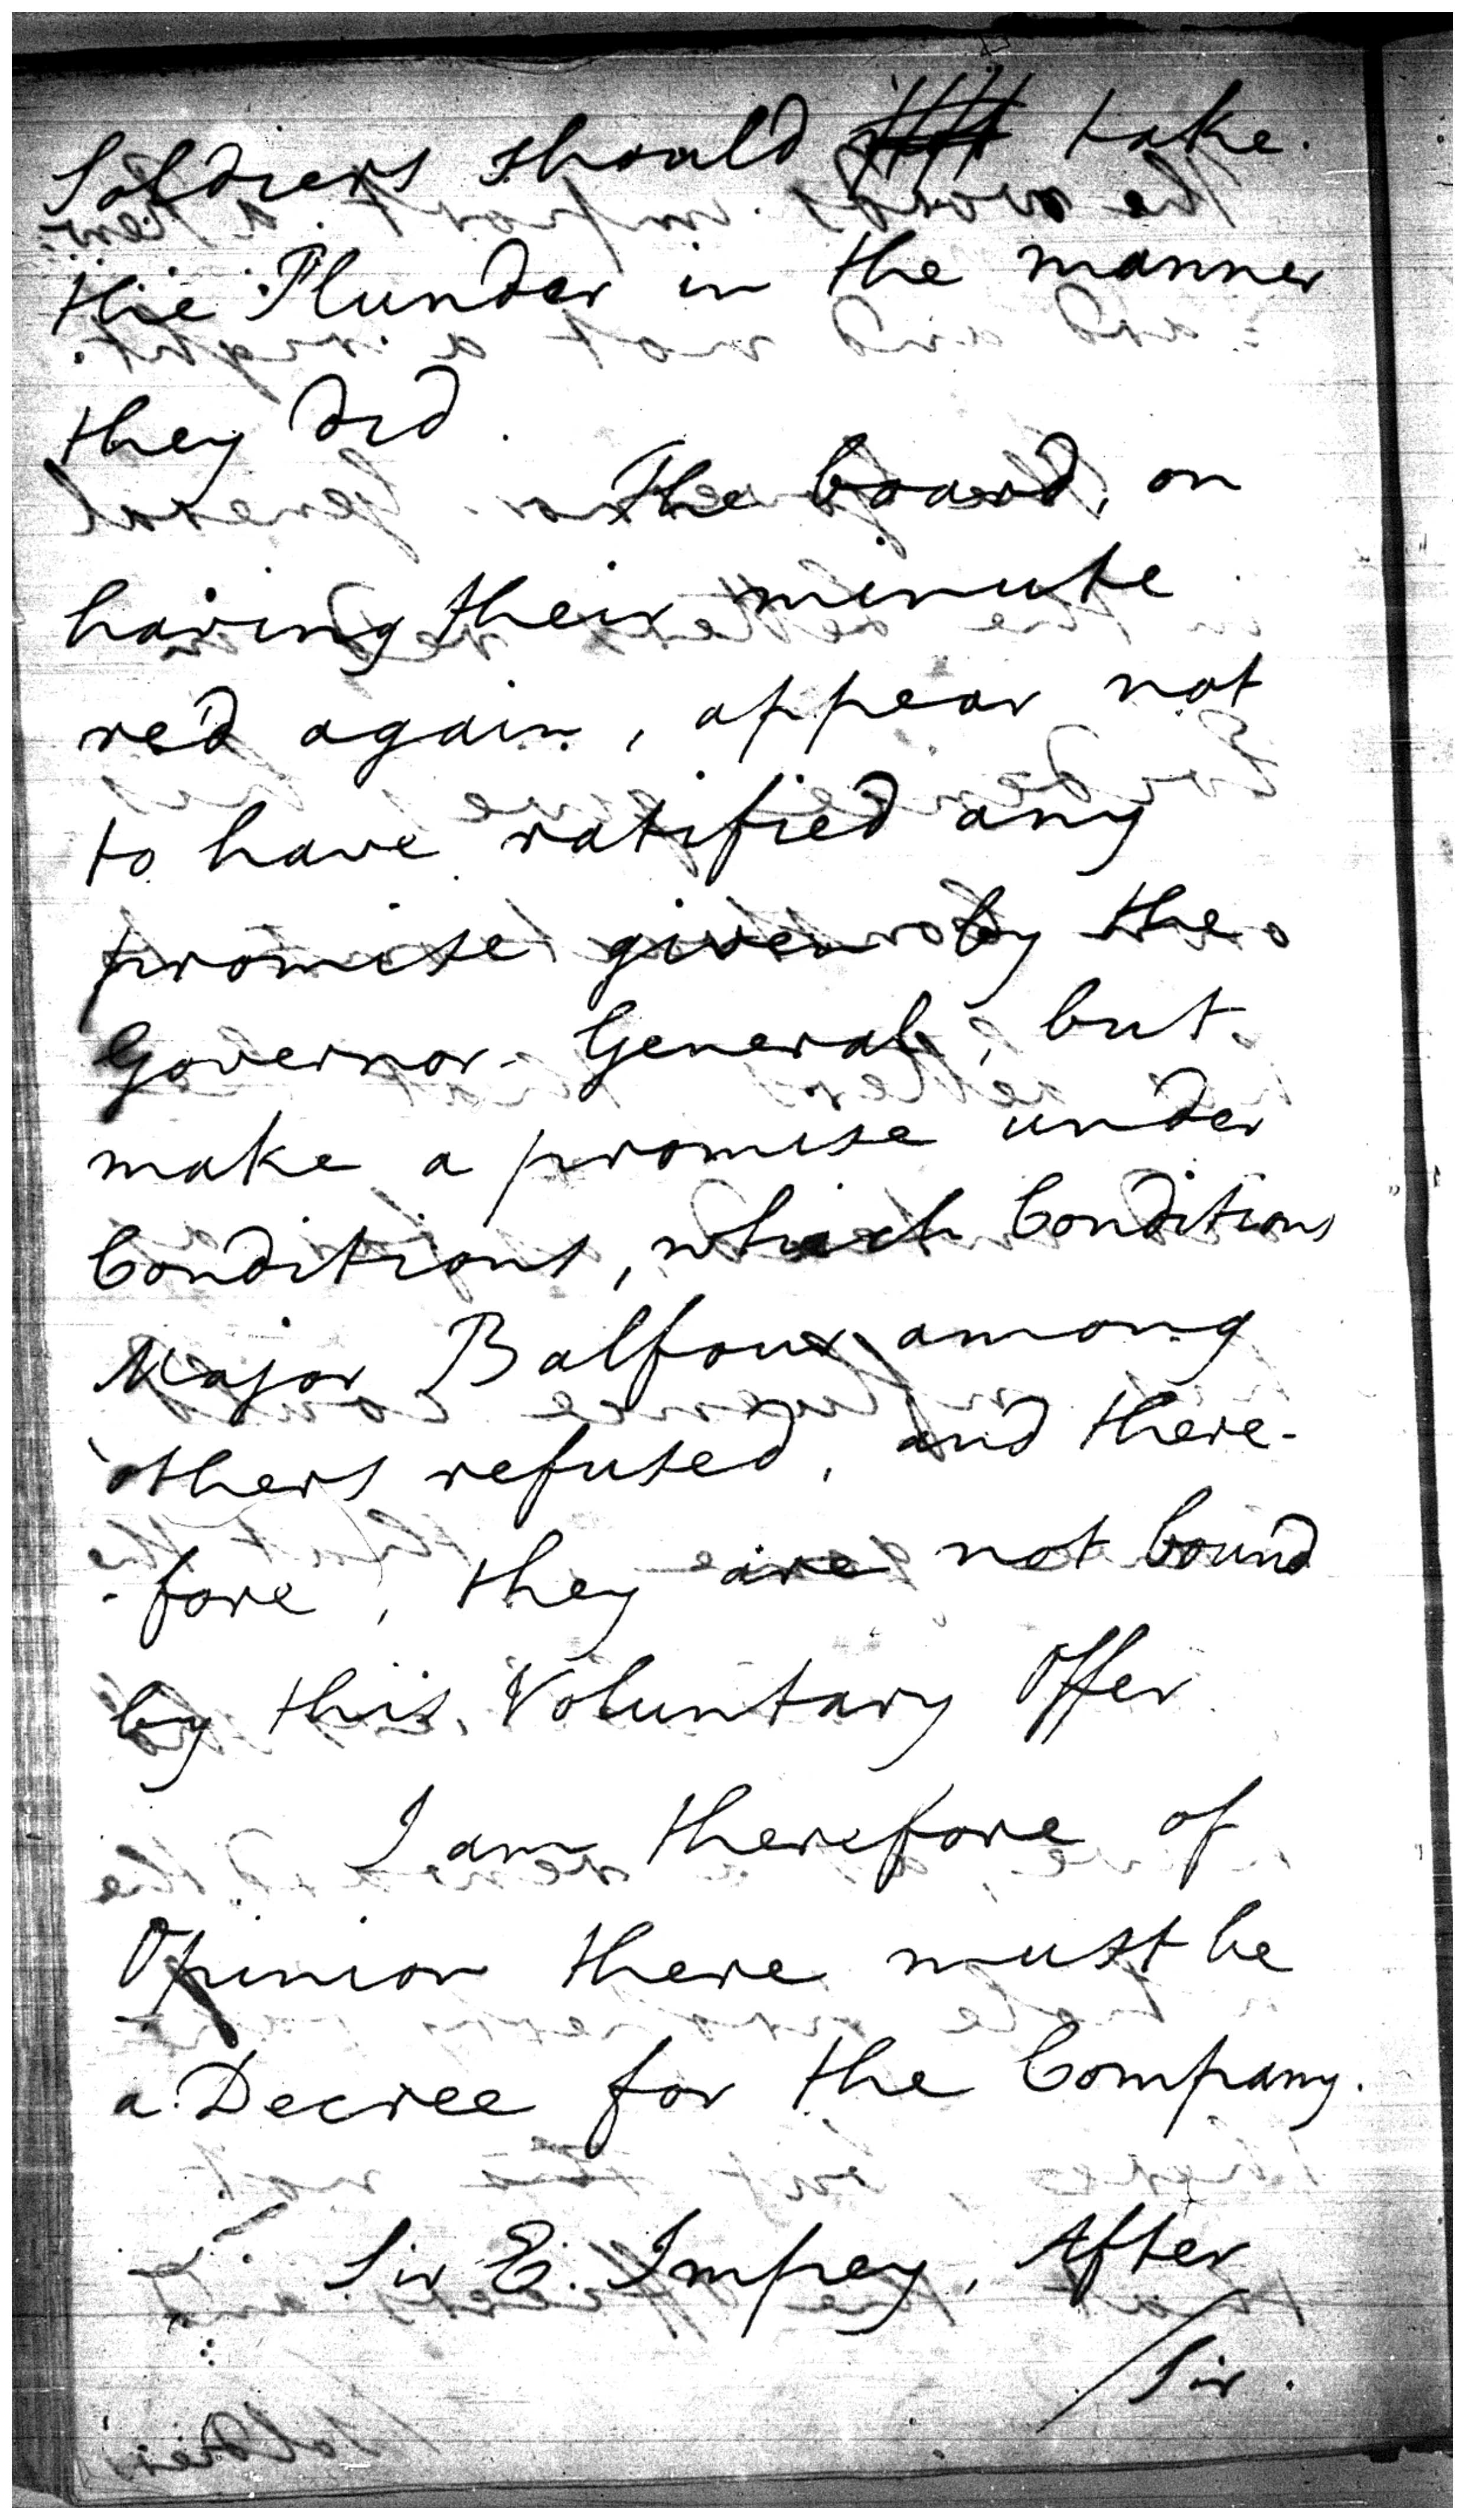 Soldiers should take
the Plunder in the manner
they did.
The board, on
having their minute
red again, appear not
to have ratified any
promise given by the
Governor-General, but
make a promise under
Conditions, which Conditions
Major Balfour among
others refused, and there-
-fore, they are not bound
by this Voluntary Offer.
I am therefore of
Opinion there must be
a Decree for the Company.
Sir E. Impey, After
/Sir.